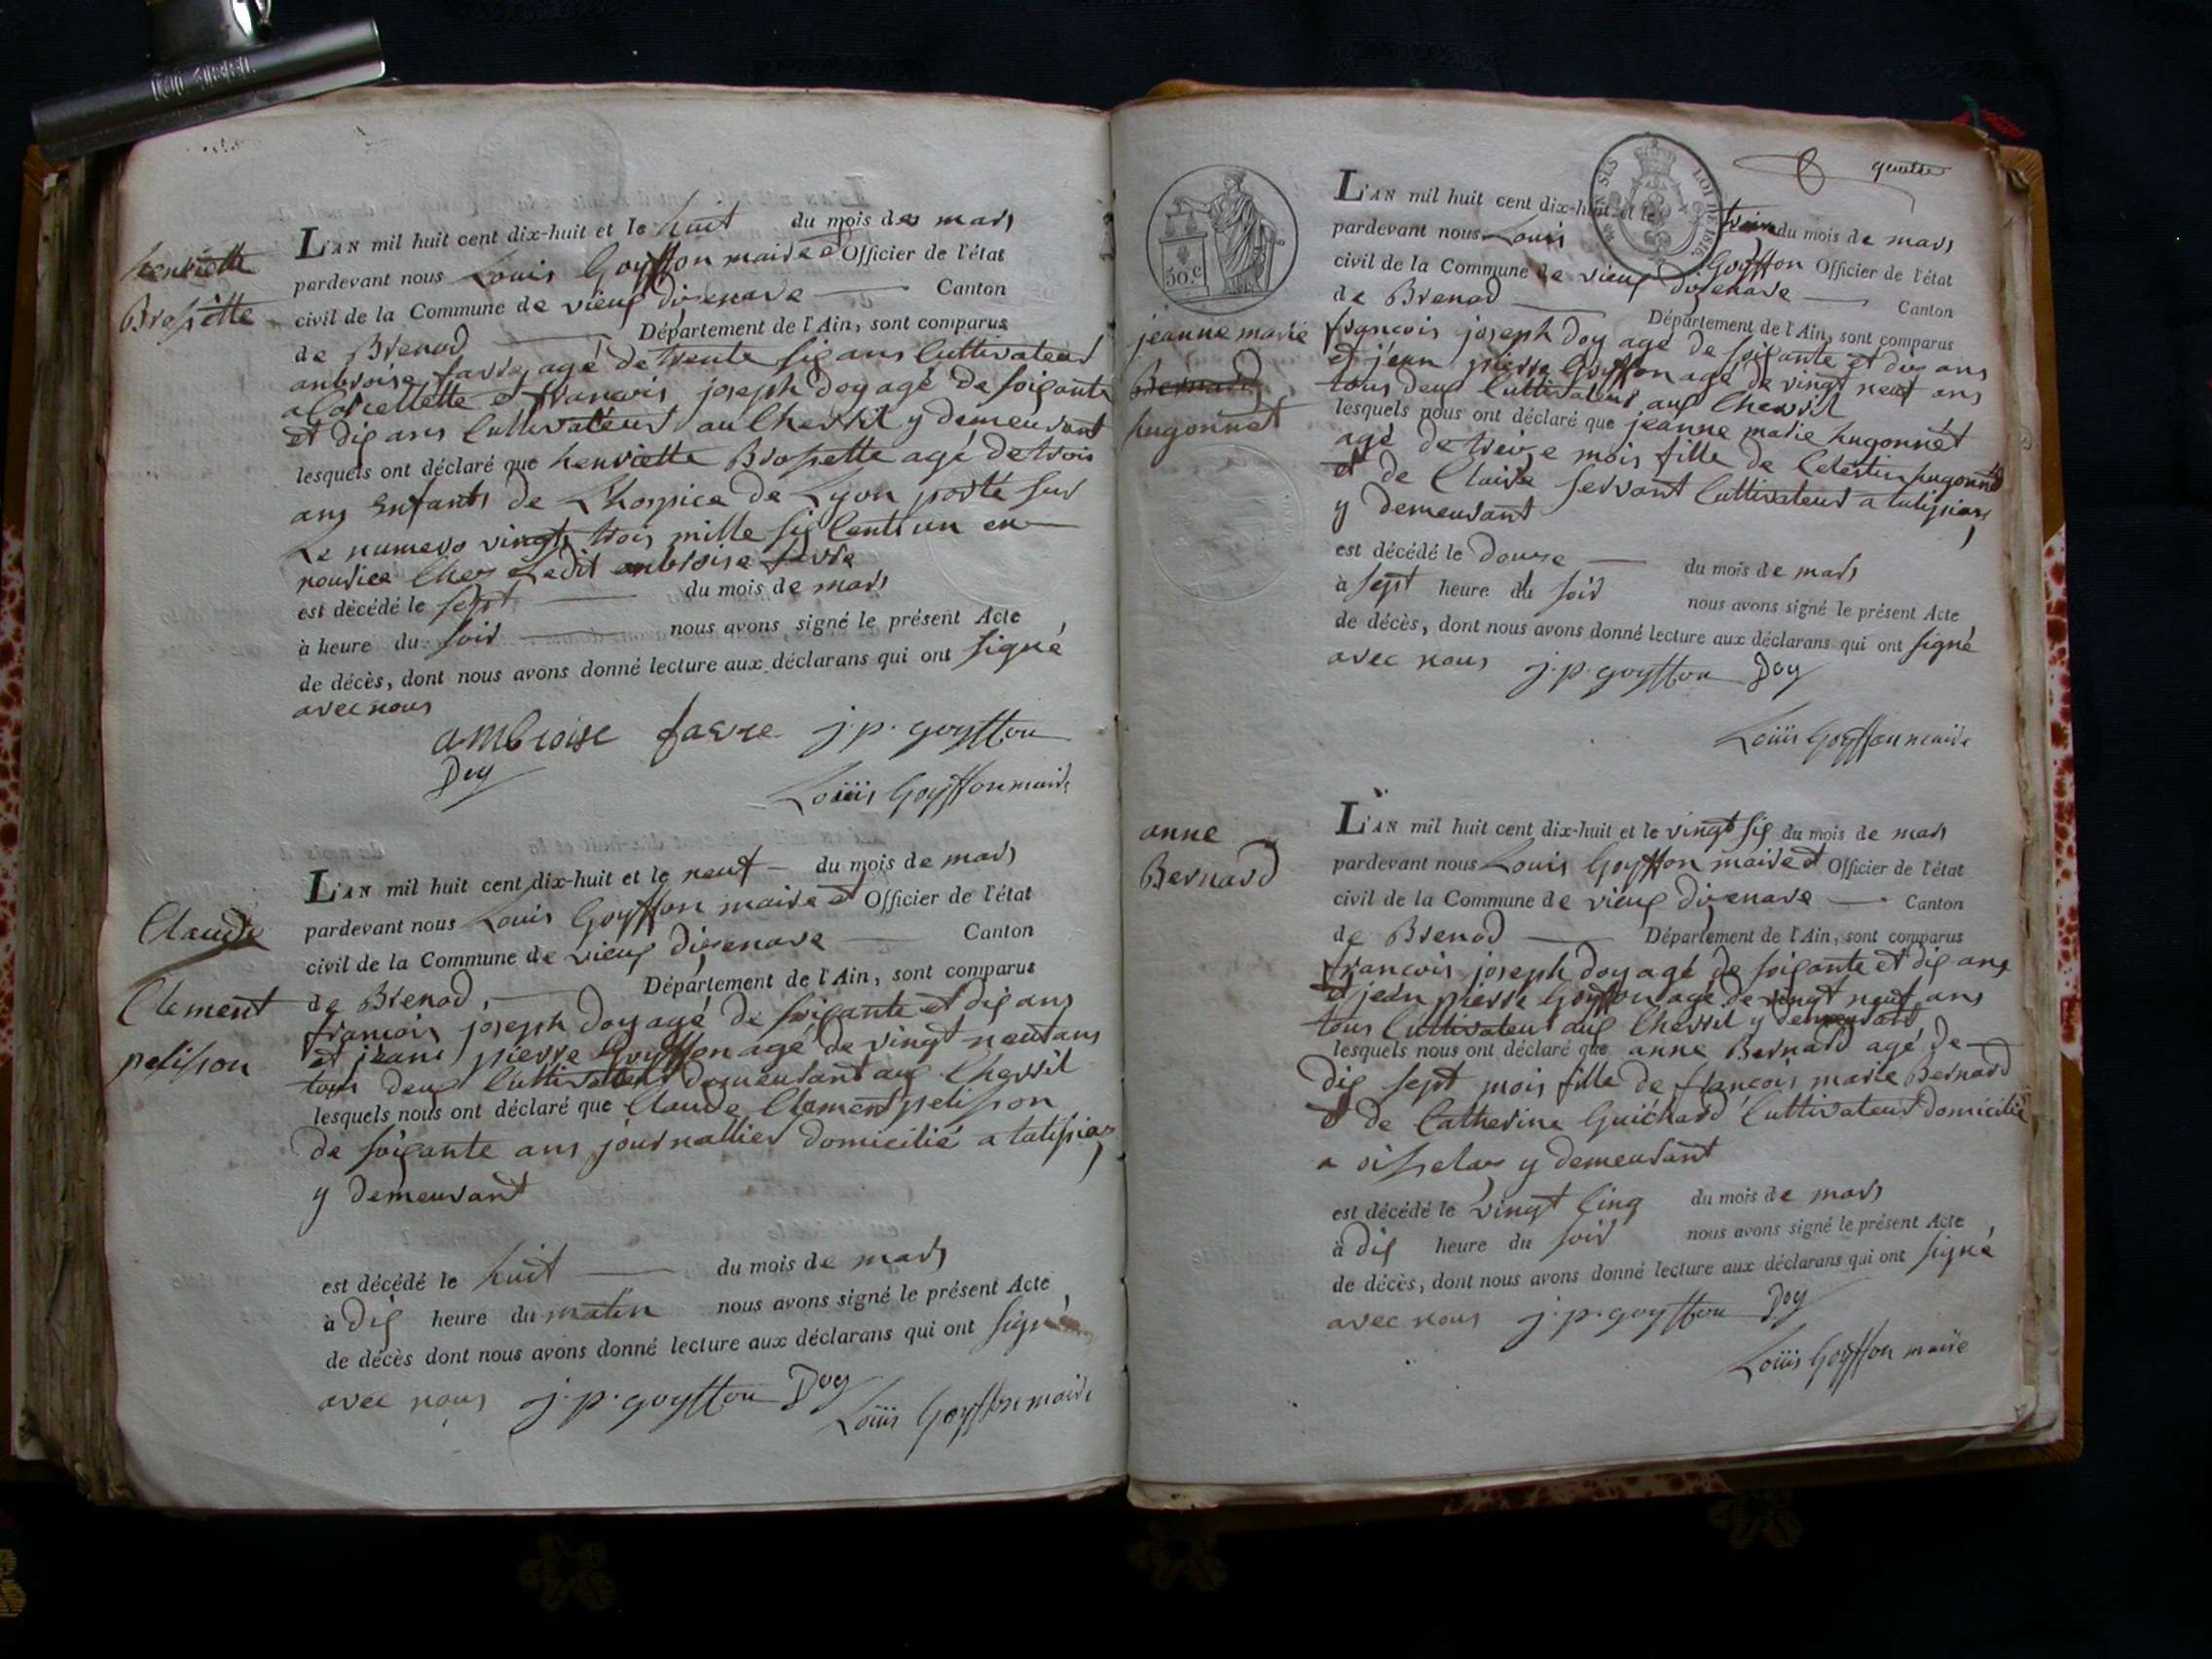 henriette
Brossette
L'AN mil huit cent dix-huit et le huit du mois de mars
pardevant nous Louis Goyffon maire et Officier de l'état
civil de la Commune de vieux dizenave Canton
de Brenod Département de l'Ain, sont comparus
ambroise favre agé de trente six ans Cultivateur
a Corcellette et francois joseph doy agé de soixante
et dix ans Cultivateur au Chevril y demeurant
lesquels ont déclaré que henriette Brossette agé de trois
ans Enfants de L'hospice de Lyon porté sur
Le numero vingt trois mille six Cents un en
nourice Chez Ledit ambroise favre
est décédé le sept du mois de mars
à heure du soir nous avons signé le présent Acte
de décès, dont nous avons donné lecture aux déclarans qui ont signé
avec nous
ambroise favre j.p. goyffon
Doy
Louis Goyffon maire
Claude
Clement
pelisson
L'AN mil huit cent dix-huit et le neuf du mois de mars
pardevant nous Louis Goyffon maire et Officier de l'état
civil de la Commune de vieux dizenave Canton
de Brenod, Département de l'Ain, sont comparus
francois joseph doy agé de soixante et dix ans
et jean pierre Goyffon agé de vingt neuf ans
tous deux Cultivateurs demeurant aux Chevril
lesquels nous ont déclaré que Claude Clement pelisson
de soixante ans journallier domicilié a talissias
y demeurant
est décédé le huit du mois de mars
à dix heure du matin nous avons signé le présent Acte,
de décès dont nous avons donné lecture aux déclarans qui ont signé
avec nous j.p. goyffon Doy
Louis Goyffon maire
50.c
LOI DE 1816
jeanne marie
hugonnet
L'AN mil huit cent dix-huit et le treize du mois de mars
pardevant nous Louis Goyffon Officier de l'état
civil de la Commune de vieux dizenave Canton
de Brenod Département de l'Ain, sont comparus
francois joseph doy agé de soixante et dix ans
et jean pierre Goyffon agé de vingt neuf ans
tous deux Cultivateurs aux Chevril
lesquels nous ont déclaré que jeanne marie hugonnet
agé de treize mois fille de Celestin hugonnet
et de Claire servant Cultivateur a talissias
y demeurant
est décédé le douze du mois de mars
à sept heure du soir nous avons signé le présent Acte,
de décès, dont nous avons donné lecture aux déclarans qui ont signé
avec nous j.p. goyffon Doy
Louis Goyffon maire
anne
Bernard
L'AN mil huit cent dix-huit et le vingt six du mois de mars
pardevant nous Louis Goyffon maire et Officier de l'état
civil de la Commune de vieux dizenave Canton
de Brenod Département de l'Ain, sont comparus
francois joseph doy agé de soixante et dix ans
et jean pierre Goyffon agé de vingt neuf ans
tous Cultivateur aux Chevril y demeurant
lesquels nous ont déclaré que anne Bernard agé de
dix sept mois fille de francois marie Bernard
et de Catherine Guichard Cultivateur domicilié
a oisselaz y demeurant
est décédé le vingt Cinq du mois de mars
à dix heure du soir nous avons signé le présent Acte,
de décès, dont nous avons donné lecture aux déclarans qui ont signé
avec nous j.p. goyffon Doy
Louis Goyffon maire